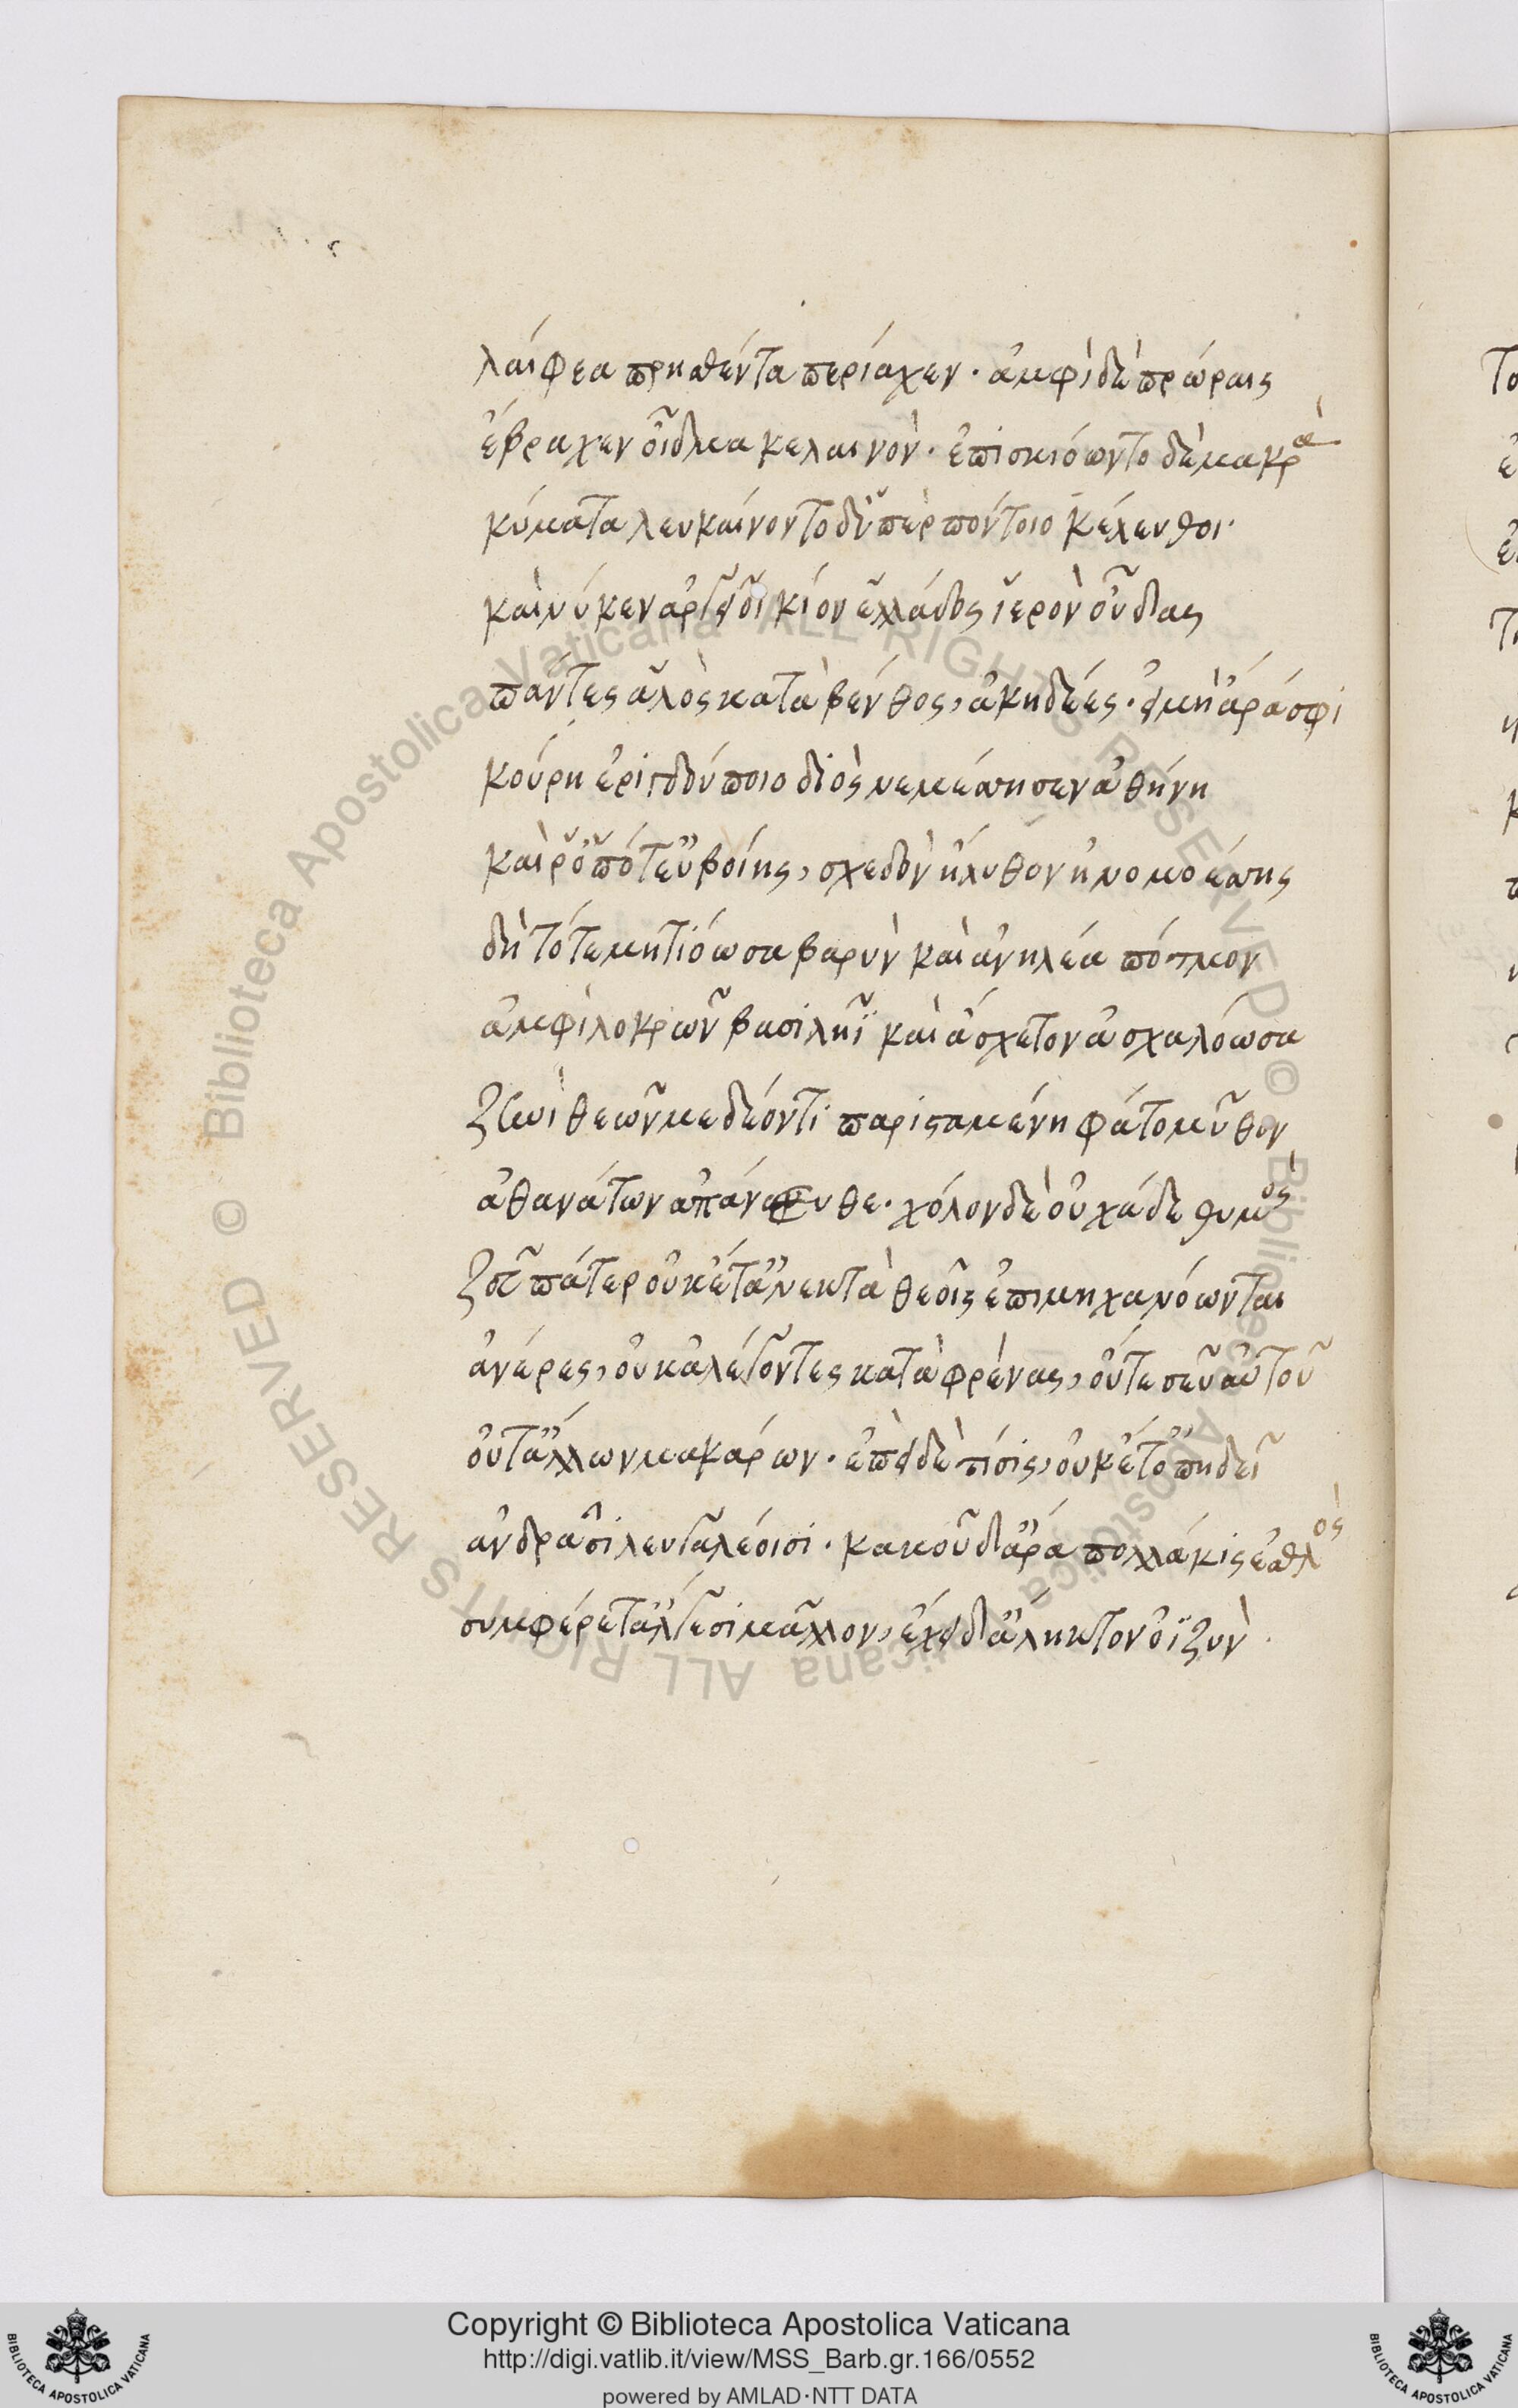 λαίφεα πρησθέντα περίαχεν· ἀμφὶ δὲ πρώραις
ἔβραχεν οἶδμα κελαινόν· ἐπισκιόωντο δὲ μακρὰ
κύματα λευκαίνοντο δ' ὑπὲρ πόντοιο κέλευθοι·
καὶ νύ κεν ἀργεῖοι κίον ἑλλάδος ἱερὸν οὖδας
πάντες ἁλὸς κατὰ βένθος, ἀκηδέες· εἰ μὴ ἄρά σφι
κούρη ἐριγδούποιο διὸς νεμέσησεν ἀθήνη
καί ῥ' ὁπότ' εὐβοίης, σχεδὸν ἤλυθον ἠνεμοέσσης
δὴ τότε μητιόωσα βαρὺν καὶ ἀνηλέα πότμον
ἀμφὶ λοκρῶν βασιλῆϊ καὶ ἄσχετον ἀσχαλόωσα
ζηνὶ θεῶν μεδέοντι παρισταμένη φάτο μῦθον
ἀθανάτων ἀπάνευθε· χόλον δὲ οὐ χάδε θυμός
ζεῦ πάτερ οὐκέτ' ἀνεκτὰ θεοῖς ἐπιμηχανόωνται
ἀνέρες, οὐκ ἀλέγοντες κατὰ φρένας, οὔτε σεῦ αὐτοῦ
οὔτ' ἄλλων μακάρων· ἐπεὶ δὲ τίσις, οὐκέτ' ὀπηδεῖ
ἀνδράσι λευγαλέοισι· κακοῦ δ' ἄρα πολλάκις ἐσθλὸς
συμφέρετ' ἄλγεσι μᾶλλον, ἔχει δ' ἄληκτον ὀϊζὺν
Copyright © Biblioteca Apostolica Vaticana
http://digi.vatlib.it/view/MSS_Barb.gr.166/0552
powered by AMLAD·NTT DATA